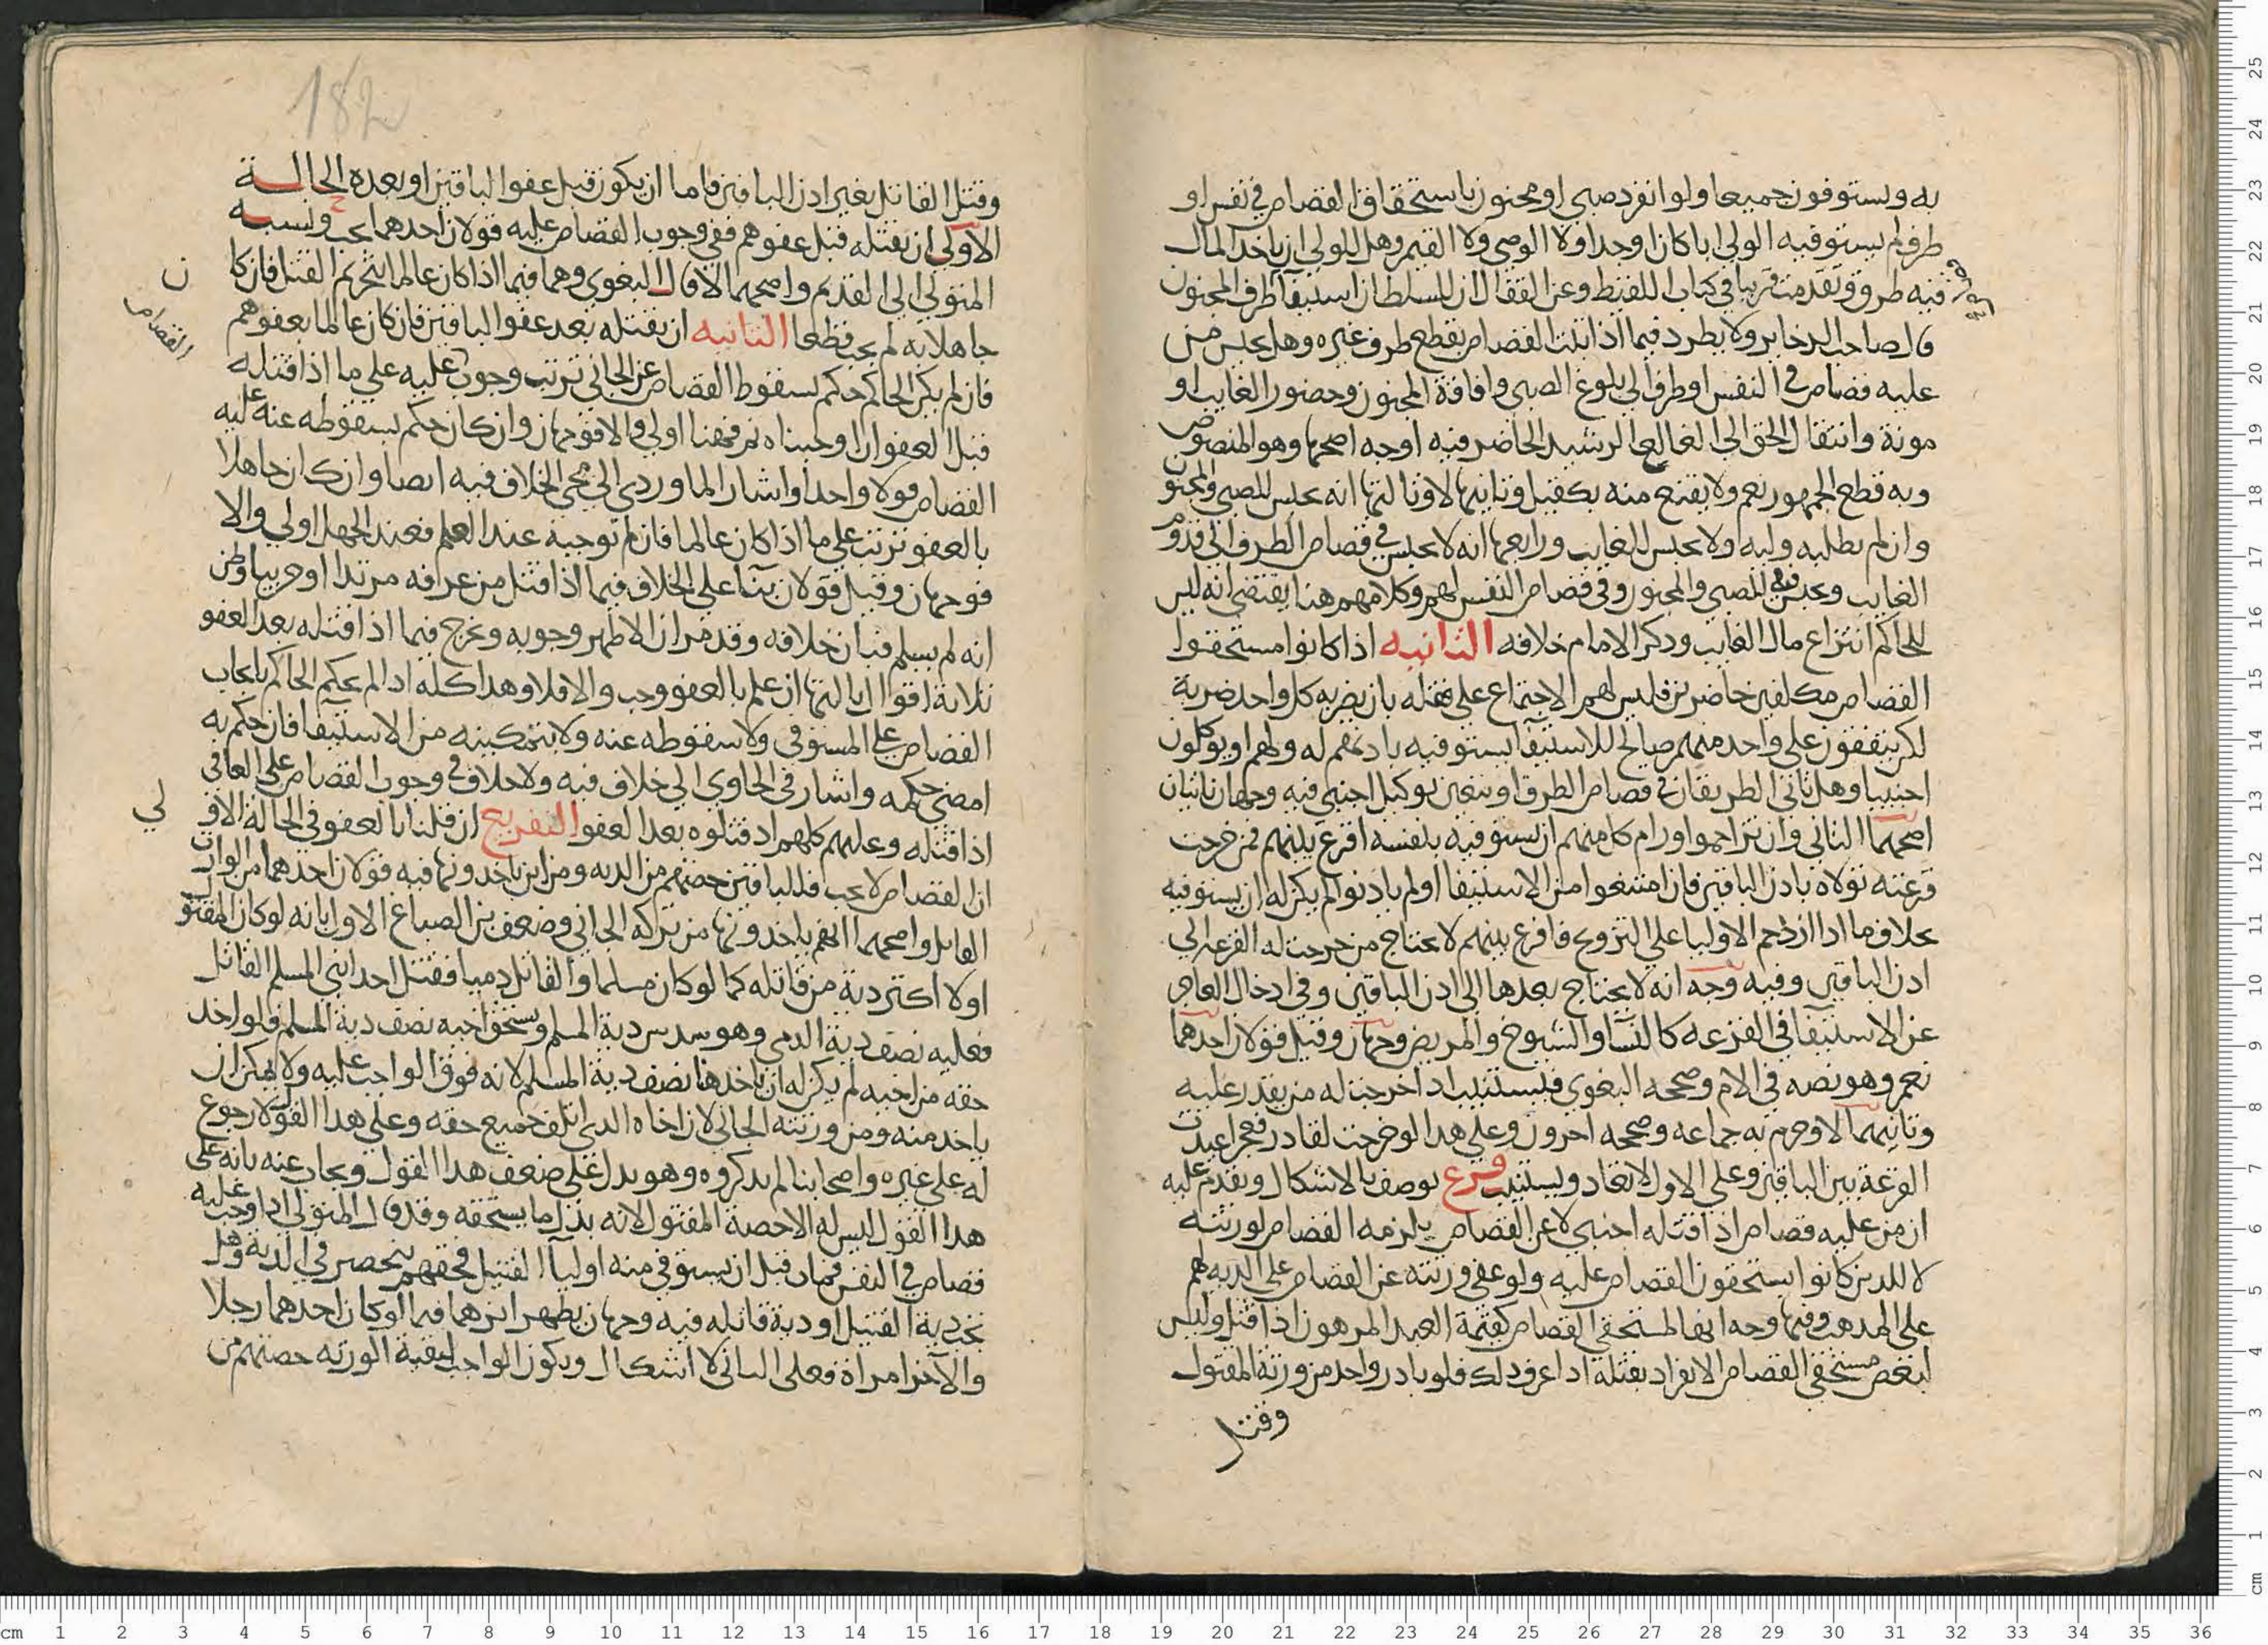 به ويستوفون جميعا ولو انفرد صبي او مجنون باستحقاق القصاص في نفس او
طرف لم يستوفيه الولي ابا كان او جدا ولا الوصي ولا القيم وهل للولي ان ياخذ المال
فيه طرق وتقدمت قريبا في كتاب اللقيط وعن القفال ان للسلطان استيفا طرف المجنون
قال صاحب الذخاير ولا يطرد فيما اذا ثبت القصاص بقطع طرف غيره وهل يحبس من
عليه قصاص في النفس او طرف الي بلوغ الصبي وافاقة المجنون وحضور الغايب او
موته وانتقال الحق الي البالغ الرشيد الحاضر فيه اوجه اصحها وهو المنصوص
وبه قطع الجمهور نعم ولا يقنع منه بكفيل وثانيها لا وثالثها انه يحبس للصبي والمجنون
وان لم يطلبه وليه ولا يحبس للغايب ورابعها انه لا يحبس في قصاص الطرف الي قدوم
الغايب ويحبس فيه للصبي والمجنون وفي قصاص النفس لهم وكلامهم هنا يقتضي انه ليس
للحاكم انتزاع مال الغايب وذكر الامام خلافه الثانيه اذا كانوا مستحقوا
القصاص مكلفين حاضرين فليس لهم الاجتماع علي قتله بان يضربه كل واحد ضربة
لكن يتفقون علي واحد منهم صالح للاستيفا يستوفيه باذنهم له ولهم او يوكلون
اجنبيا وهل تاتي الطريقان في قصاص الطرف او يتعين توكيل اجنبي فيه وجهان ثابتان
اصحهما الثاني وان تزاحموا ورام كل منهم ان يستوفيه بنفسه اقرع بينهم فمن خرجت
قرعته تولاه باذن الباقين فان امتنعوا من الاستيفا او لم ياذنوا لم يكن له ان يستوفيه
بخلاف ما اذا ازدحم الاوليا علي التزويج فاقرع بينهم لا يحتاج من خرجت له القرعه الي
اذن الباقين وفيه وجه انه لا يحتاج بعدها الي اذن الباقين وفي ادخال العاجز
عن الاستيفا في القرعه كالنسا والشيوخ والمريض وجهان وقيل قولان احدهما
نعم وهو نصه في الام وصححه البغوي فيستنيب اذا خرجت له من يقدر عليه
وثانيهما لا وجزم به جماعه وصححه اخرون وعلي هذا لو خرجت لقادر فعجز اعيدت
القرعة بين الباقين وعلي الاول لا تعاد ويستنيب فرع يوصف بالاشكال وتقدم عليه
ان من عليه قصاص اذا قتله اجنبي لا عن القصاص يلزمه القصاص لورثته
لا للذين كانوا يستحقون القصاص عليه ولو عفي ورثته عن القصاص علي الديه لهم
علي المذهب وفيها وجه انها لمستحقي القصاص كقيمة العبد المرهون اذا قتل وليس
لبعض مستحقي القصاص الانفراد بقتله اذا عرف ذلك فلو بادر واحد من ورثة المقتول
وقتل
182
وقتل القاتل بغير اذن الباقين فاما ان يكون قبل عفو الباقين او بعده الحالة
الاولي ان يقتله قبل عفوهم ففي وجوب القصاص عليه قولان احدهما يجب ونسبه
المتولي الي القديم واصحهما لا قال البغوي وهما فيما اذا كان عالما بتحريم القتل فان كا
ن
جاهلا به لم يجب قطعا الثانيه ان يقتله بعد عفو الباقين فان كان عالما بعفوهم
القصاص
فان لم يكن الحاكم حكم بسقوط القصاص عن الجاني ترتب وجوب عليه علي ما اذا قتله
قبل العفو ان اوجبناه ثم فهنا اولي والا فوجهان وان كان حكم بسقوطه عنه عليه
القصاص قولا واحدا واشار الماوردي الي مجي الخلاف فيه ايضا وان كان جاهلا
بالعفو ترتب علي ما اذا كان عالما فان لم نوجبه عند العلم فعند الجهل اولي والا
فوجهان وقيل قولان بنا علي الخلاف فيما اذا قتل من عرفه مرتدا او حربيا وظن
انه لم يسلم فبان خلافه وقد مر ان الاظهر وجوبه ويخرج فيما اذا قتله بعد العفو
ثلاثة اقوال ثالثها ان علم بالعفو وجب والا فلا وهذا كله اذا لم يحكم الحاكم بايجاب
القصاص علي المستوفي ولا سقوطه عنه ولا بتمكينه من الاستيفا فان حكم به
امضي حكمه واشار في الحاوي الي خلاف فيه ولا خلاف في وجوب القصاص علي العافي
اذا قتله وعليهم كلهم اذ قتلوه بعد العفو التفريع ان قلنا بالعفو في الحالة الاو
لي
ان القصاص لا يجب فللباقين حصتهم من الديه ومن اين ياخذونها فيه قولان احدهما من الوارث
القاتل واصحهما انهم ياخذونها من تركه الجاني وضعف بن الصباغ الاول بانه لو كان المقتو
ل اولا اكثر دية من قاتله كما لو كان مسلما والقاتل ذميا فقتل احد ابني المسلم القاتل
فعليه نصف دية الذمي وهو سدس دية المسلم ويستحق اخيه نصف دية المسلم فلو اخذ
حقه من اخيه لم يكن له ان ياخذ هنا نصف دية المسلم لانه فوق الواجب عليه ولا يمكن ان
ياخذ منه ومن ورثته الجاني لان اخاه الذي اتلف جميع حقه وعلي هذا القول لا رجوع
له علي غيره واصحابنا لم يذكروه وهو يدل علي ضعف هذا القول ويجاب عنه بانه علي
هذا القول ليس له الا حصة المقتول لانه بدل ما يستحقه وقد قال المتولي اذا وجب عليه
قصاص في النفس فمات قبل ان يستوفي منه اوليا القتيل فحقهم ينحصر في الدية وهل
تجب دية القتيل او دية قاتله فيه وجهان يظهر اثرهما فيما لو كان احدهما رجلا
والآخر امراة فعلي الثاني لا اشكال ويكون الواجب لبقية الورثه حصتهم من